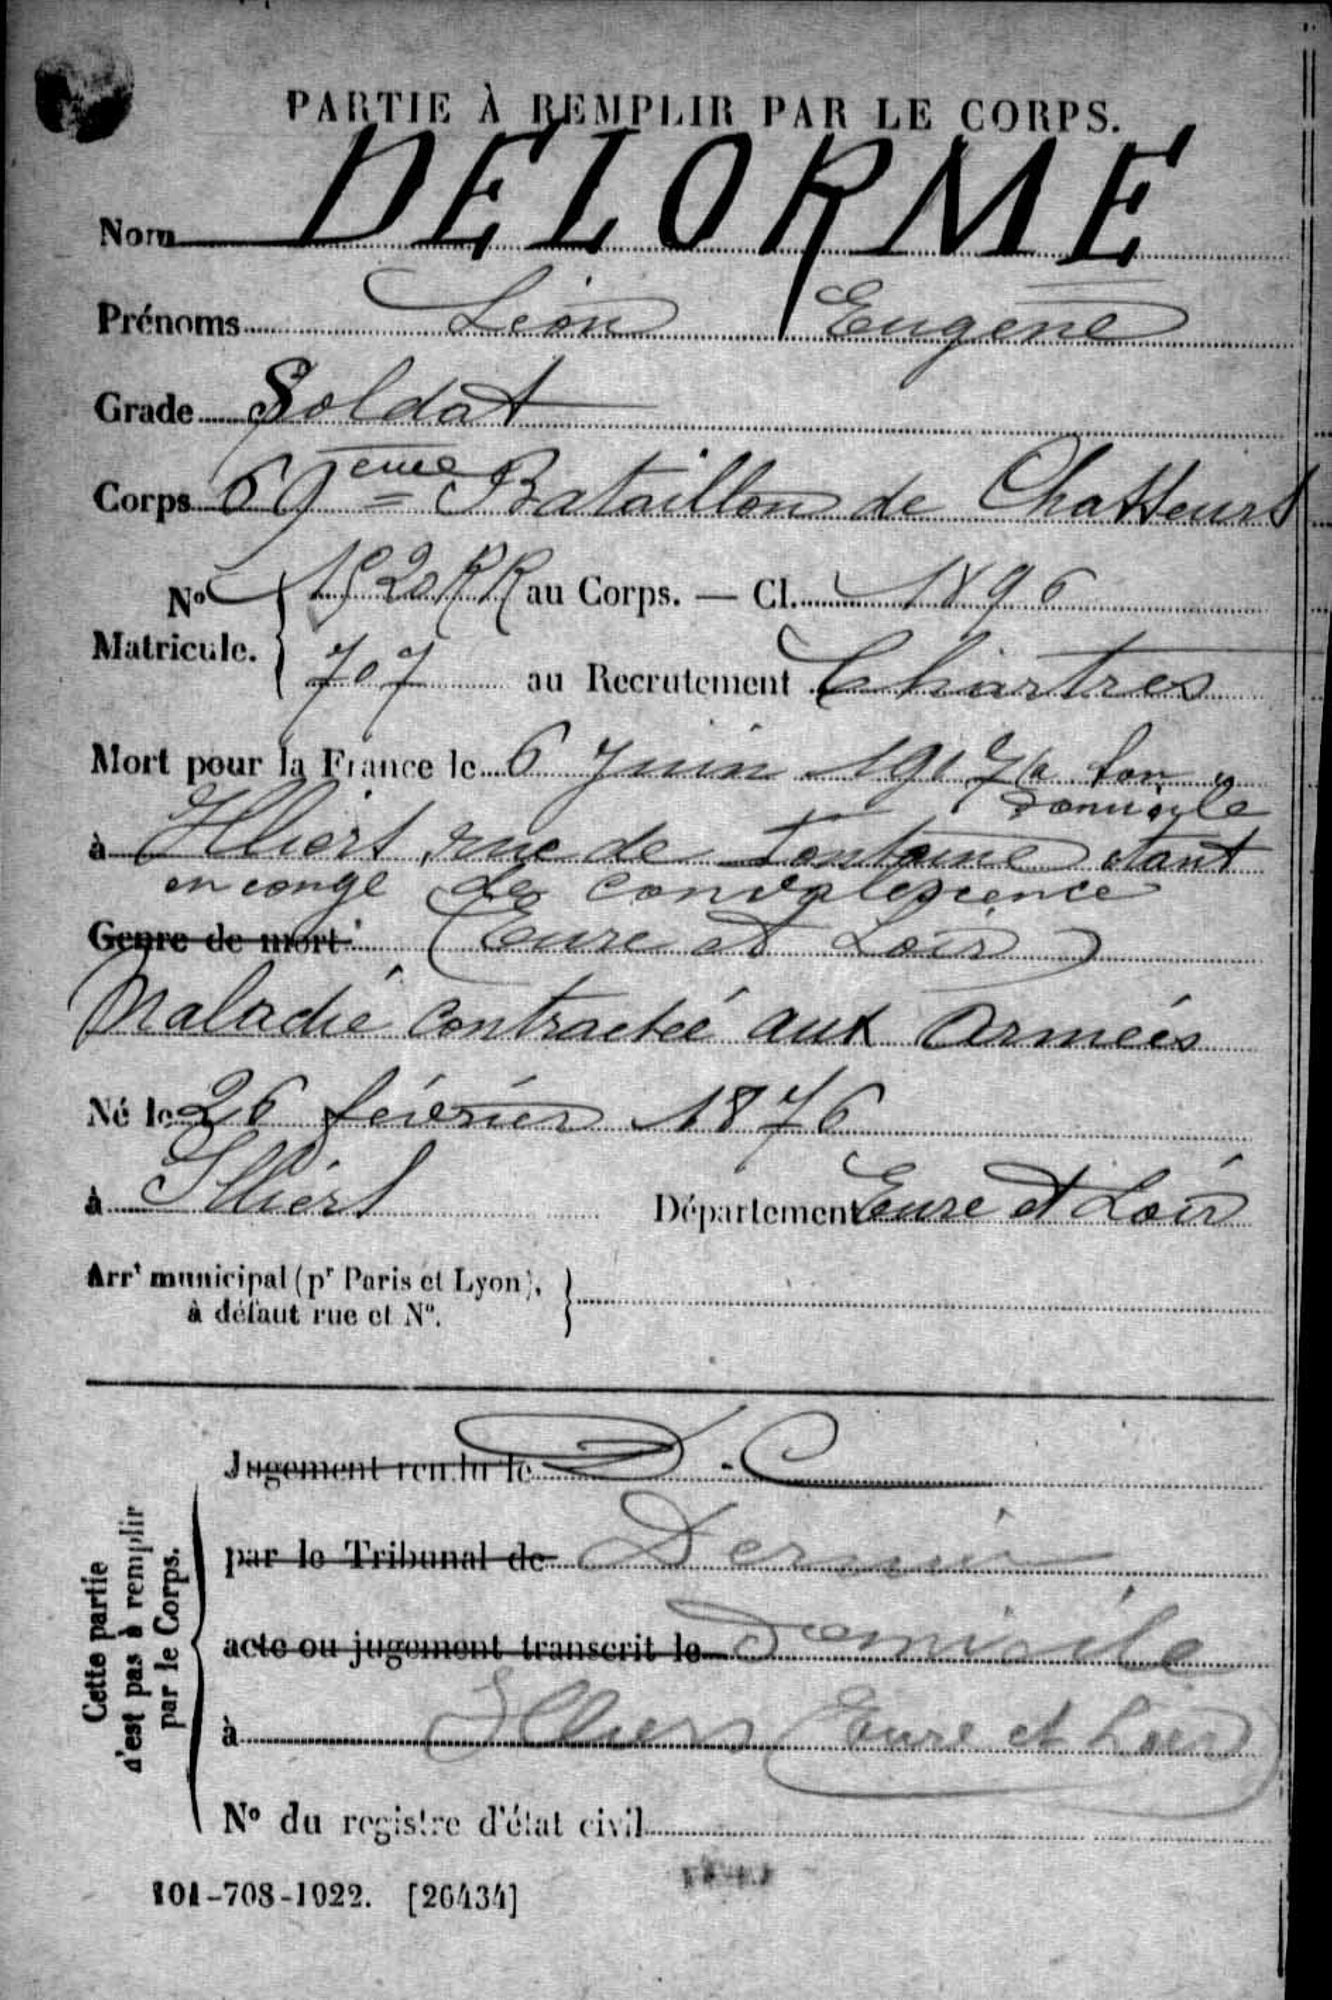 PARTIE À REMPLIR PAR LE CORPS.
Nom DELORME
Prénoms Léon Eugène
Grade Soldat
Corps 69ème Bataillon de Chasseurs
No Matricule. 1520 RR au Corps. — Cl. 1896
707 au Recrutement Chartres
Mort pour la France le 6 Juin 1917 à son domicile
à Illiers rue de Fontaine étant
en congé de convalescence
Genre de mort : (Eure et Loir)
Maladie contractée aux Armées
Né le 26 février 1876
à Illiers Département Eure et Loir
Arrt municipal (pr Paris et Lyon),
à défaut rue et No.
Cette partie
n'est pas à remplir
par le Corps.
Jugement rendu le D.C
par le Tribunal de Dernier
acte ou jugement transcrit le Domicile
à Illiers (Eure et Loir)
No du registre d'état civil
101-708-1922. [26434]